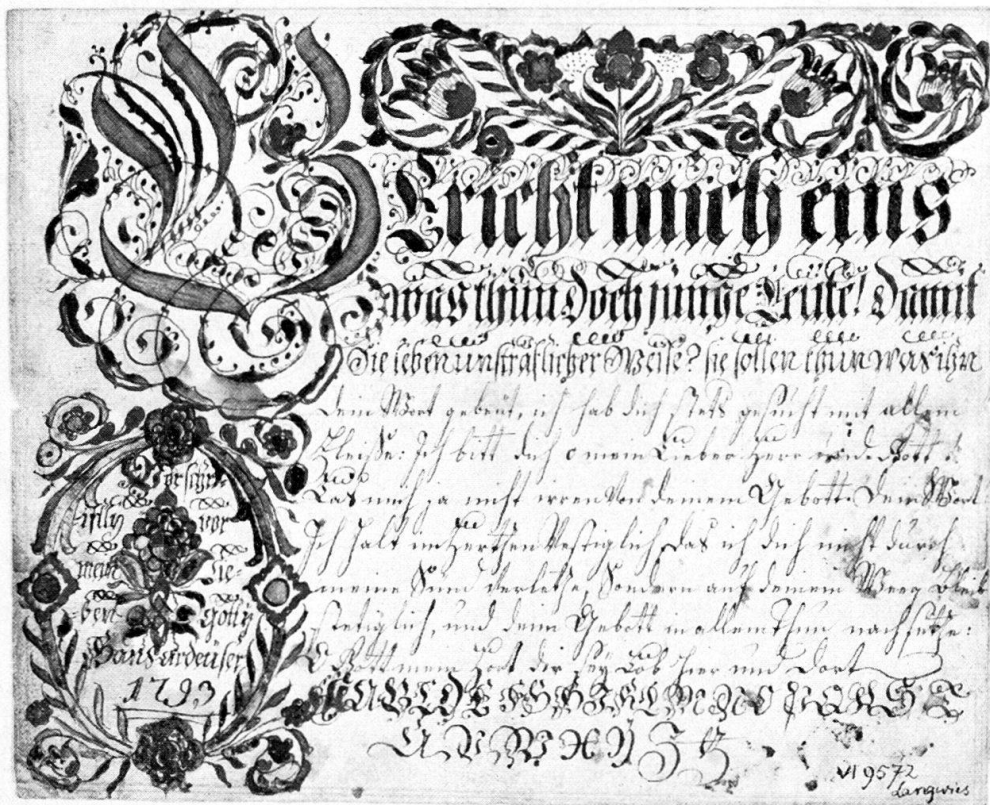 Bricht mich eins
was thun doch junge Leute! Damit
Sie leben unsträflicher Weise? sie sollen thun was ihn
dein Wort gebeut, ich hab dich stets gesucht mit allem
fleisse: Ich bitt dich o mein Lieber Herr und Gott:
Las mich ja nicht irren Von deinem Gebott. Dein Wort
Ich halt im Hertzen Vestiglich, das ich dich nicht durch
meine Sünd verletze, Sondern auf deinem Weeg bleib
stetiglich, und deim Gebott in allem Thun nachsetze:
O Gott mein Hort dir sey Lob hier und Dort
A B C D E F G H I K L M N O P Q R S T
U V W X Y Z
Vorschrif-
vor
mein lie-
ben götty
Hans urdeüser
1793
VI 9572
Langwies